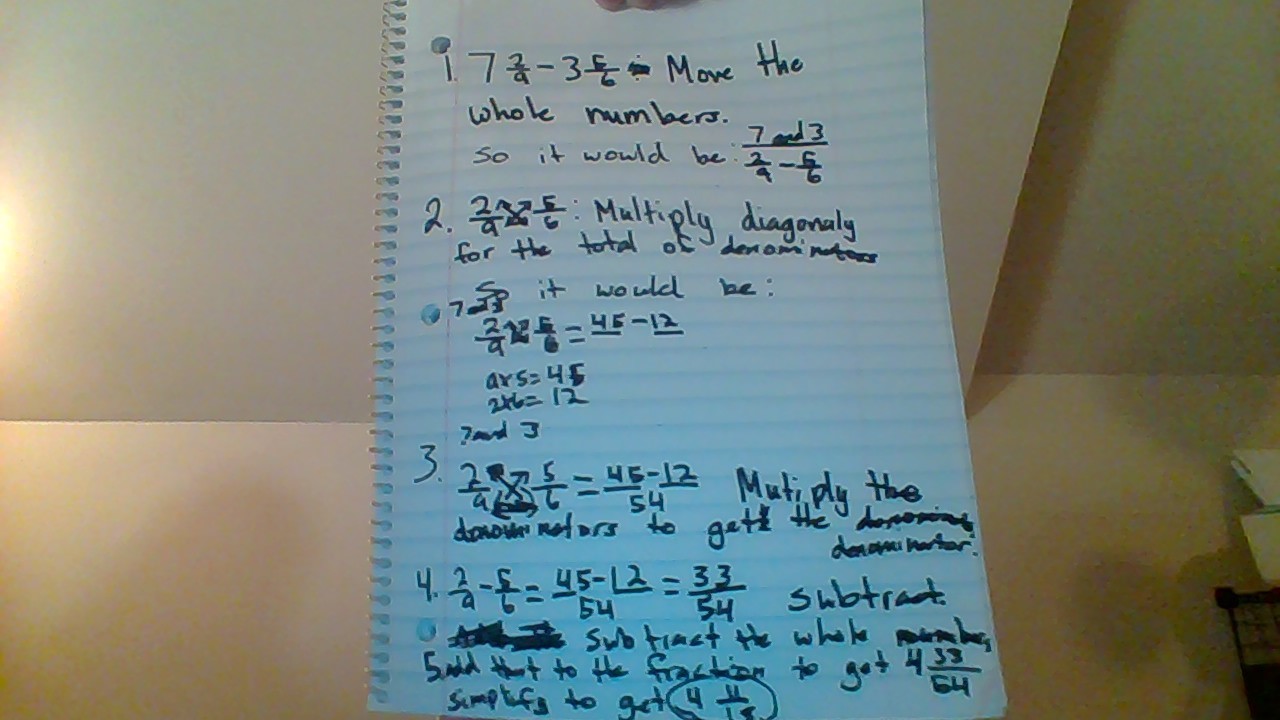 1. 7 2/9 - 3 5/6 : Move the
whole numbers.
so it would be: 7 and 3 / 2/9 - 5/6
2. 2/9 5/6 : Multiply diagonaly
for the total of denominators
So it would be:
7 and 3
2/9 5/6 = 45 - 12
9x5=45
2x6=12
7 and 3
3. 2/9 5/6 = 45-12/54 Mutiply the
denominators to get the
denominator.
4. 2/9 - 5/6 = 45-12/54 = 33/54 subtract.
subtract the whole numbers,
5. add that to the fraction to get 4 33/54
simplify to get 4 11/18